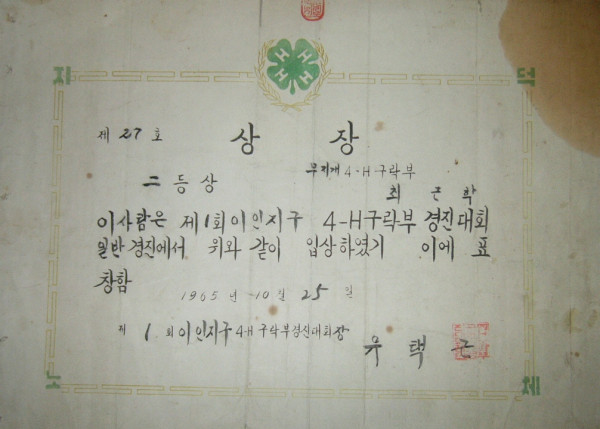 지 덕
H H H H
제 27 호 상 장
무지개 4-H구락부
二등상
최 근 학
이사람은 제1회이인지구 4-H구락부 경진대회
일반경진에서 위와 같이 입상하였기 이에 표
창함
1965 년 10 월 25 일
제 1 회이인지구4-H구락부경진대회장
우 택 근
노 체